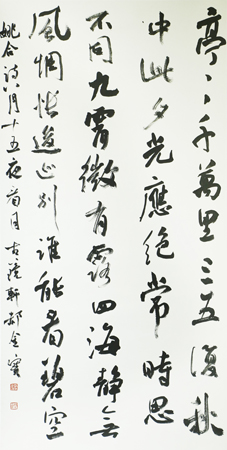 亭〻千萬里三五復秋
中此夕光應絕常時思
不同九霄微有露四海靜無
風惆悵逡巡別誰能看碧空
姚合詩八月十五夜看月 古 軒